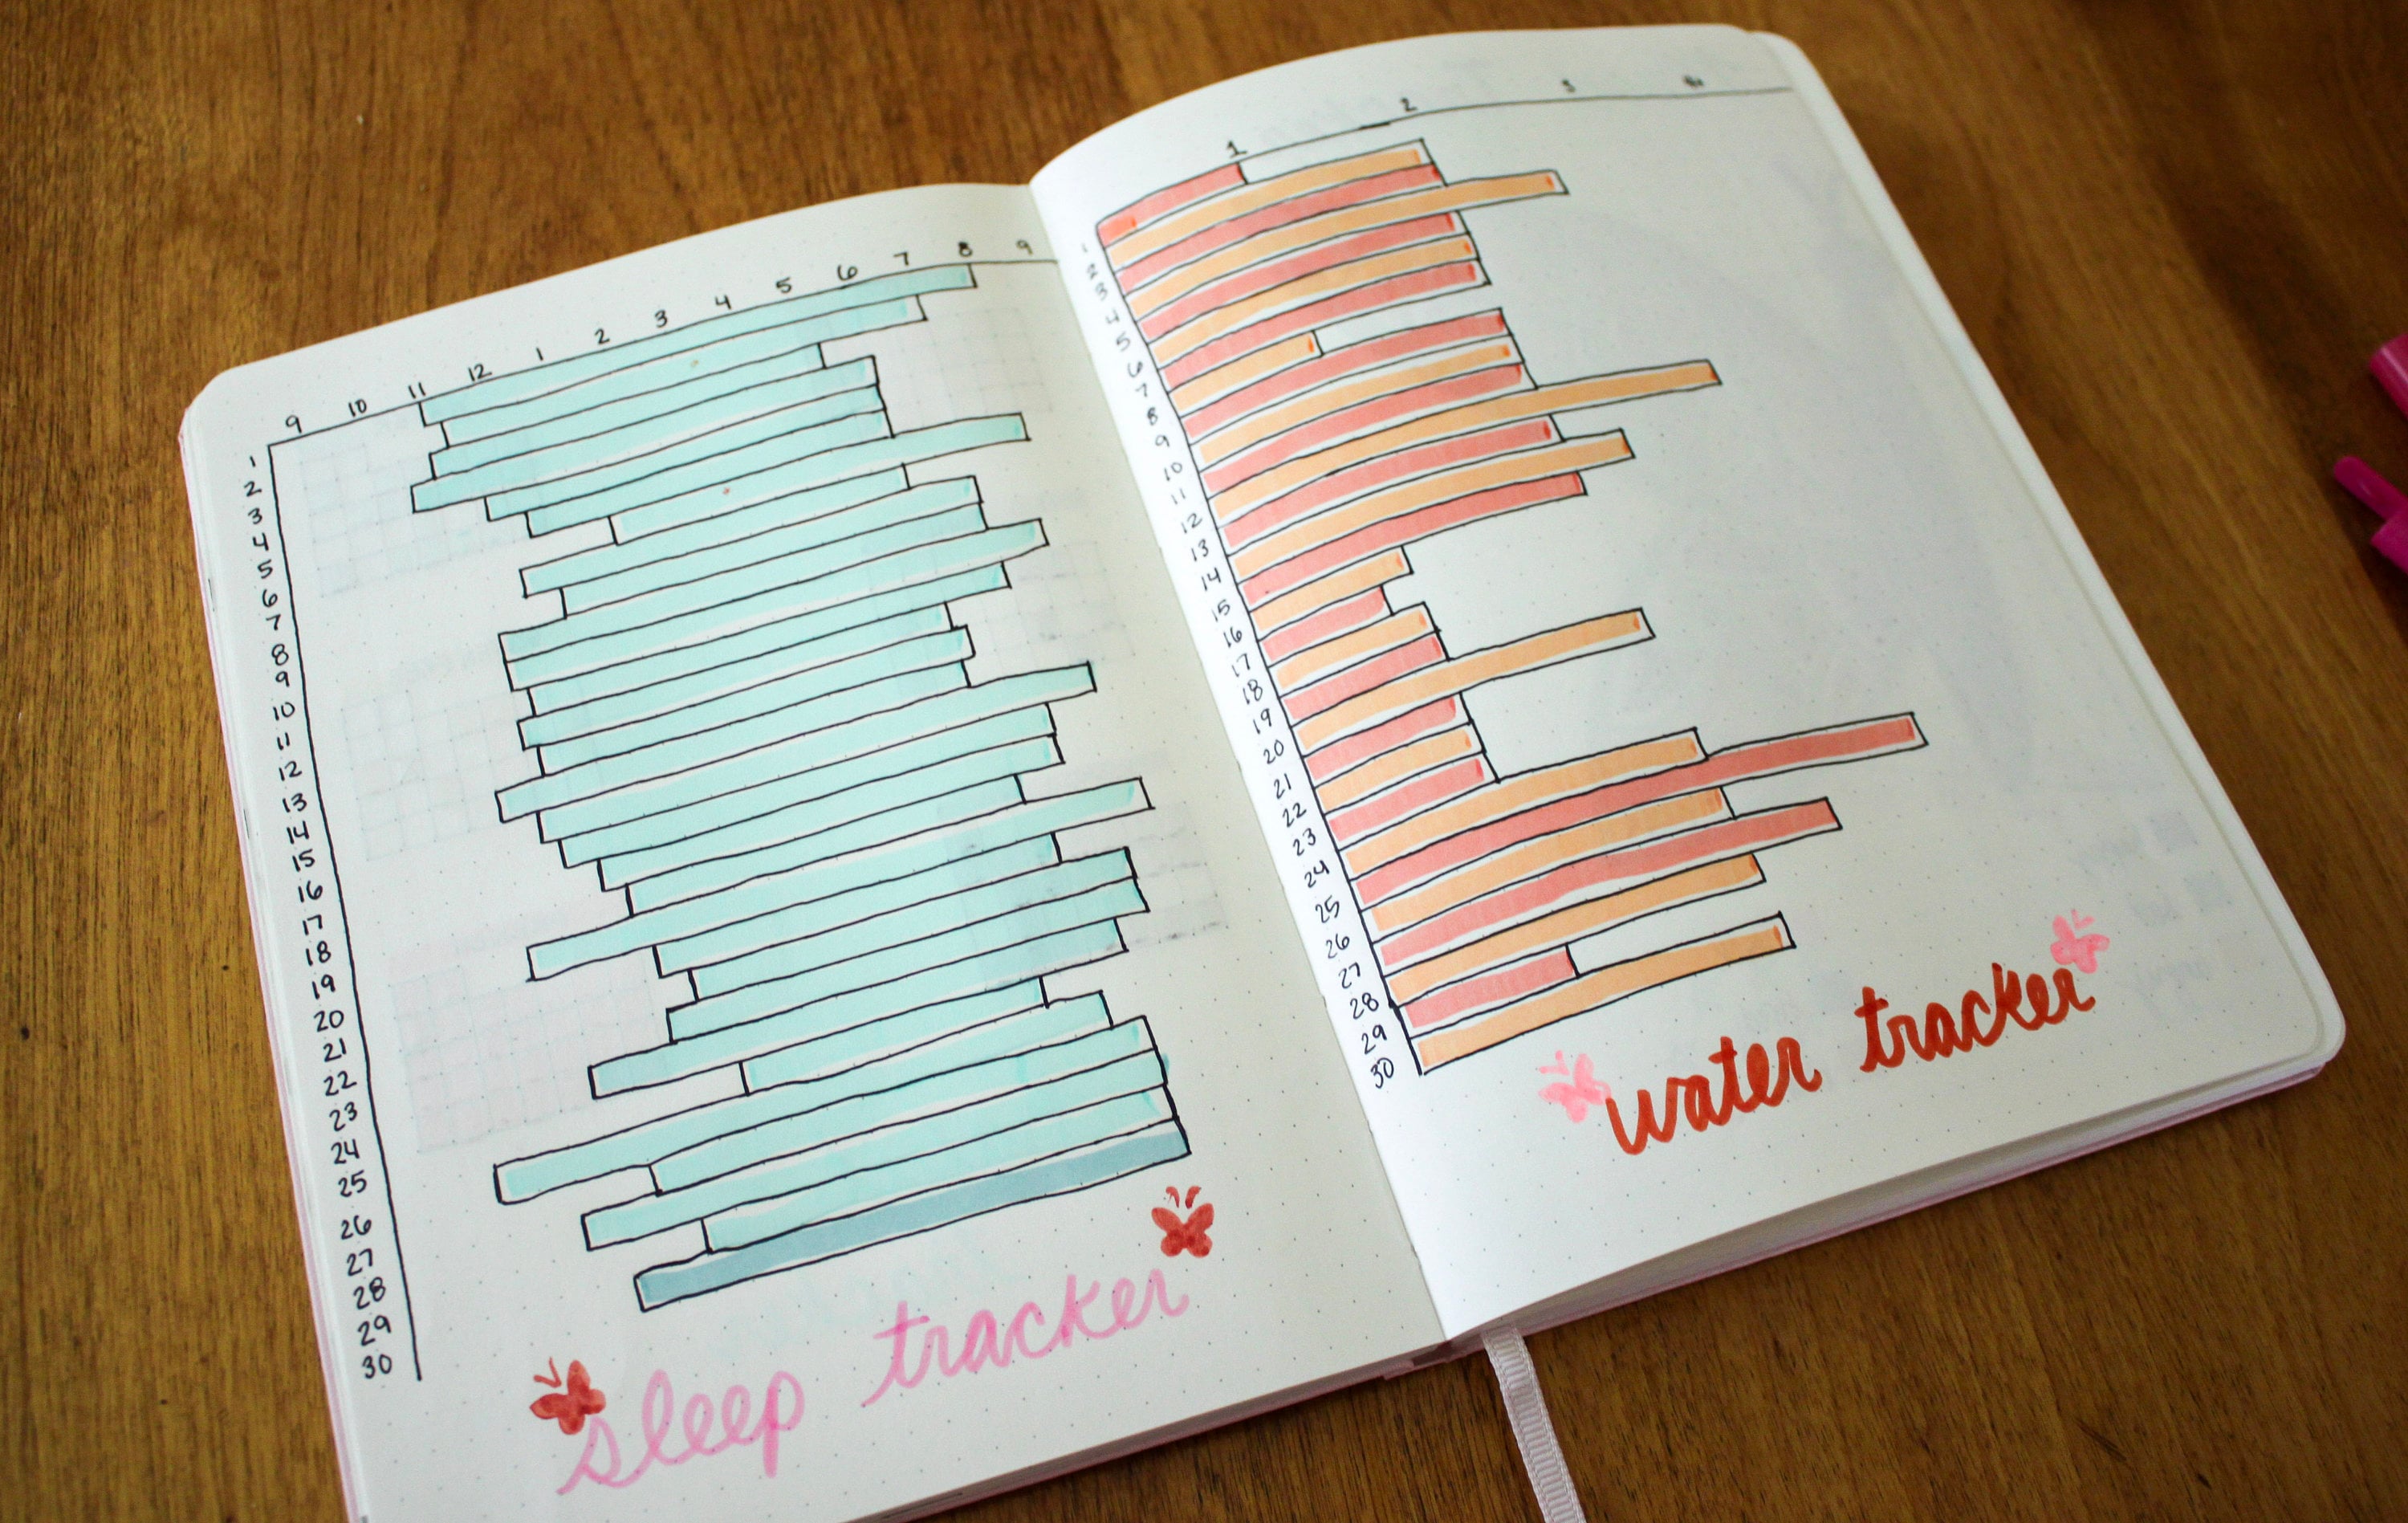 9 10 11 12 1 2 3 4 5 6 7 8 9
1
2
3
4
5
6
7
8
9
10
11
12
13
14
15
16
17
18
19
20
21
22
23
24
25
26
27
28
29
30
sleep tracker
1 2 3
1
2
3
4
5
6
7
8
9
10
11
12
13
14
15
16
17
18
19
20
21
22
23
24
25
26
27
28
29
30
water tracker